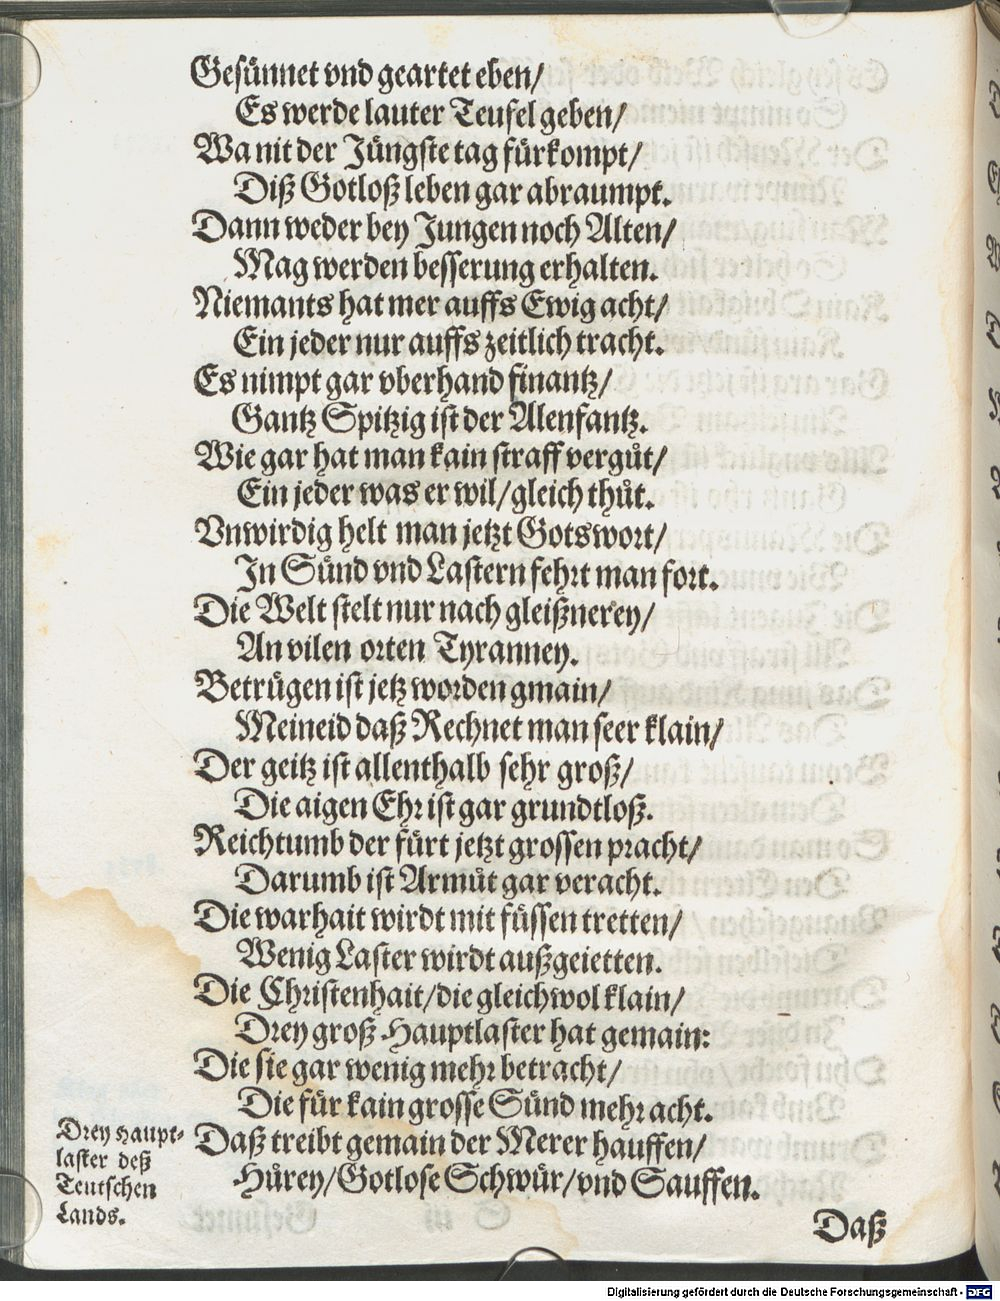 Gesünnet vnd geartet eben/
Es werde lauter Teufel geben/
Wa nit der Jüngste tag fürkompt/
Diß Gotloß leben gar abraumpt.
Dann weder bey Jungen noch Alten/
Mag werden besserung erhalten.
Niemants hat mer auffs Ewig acht/
Ein jeder nur auffs zeitlich tracht.
Es nimpt gar vberhand finantz/
Gantz Spitzig ist der Alenfantz.
Wie gar hat man kain straff vergůt/
Ein jeder was er wil/gleich thůt.
Vnwirdig helt man jetzt Gotswort/
In Sünd vnd Lastern fehrt man fort.
Die Welt stelt nur nach gleißnerey/
An vilen orten Tyranney.
Betrügen ist jetz worden gmain/
Meineid daß Rechnet man seer klain/
Der geitz ist allenthalb sehr groß/
Die aigen Ehr ist gar grundtloß.
Reichtumb der fürt jetzt grossen pracht/
Darumb ist Armůt gar veracht.
Die warhait wirdt mit füssen tretten/
Wenig Laster wirdt außgeietten.
Die Christenhait/die gleichwol klain/
Drey groß Hauptlaster hat gemain:
Die sie gar wenig mehr betracht/
Die für kain grosse Sünd mehr acht.
Drey Haupt-
laster deß
Teutschen
Lands.
Daß treibt gemain der Merer hauffen/
Hůrey/Gotlose Schwür/vnd Sauffen.
Daß
Digitalisierung gefördert durch die Deutsche Forschungsgemeinschaft - DFG